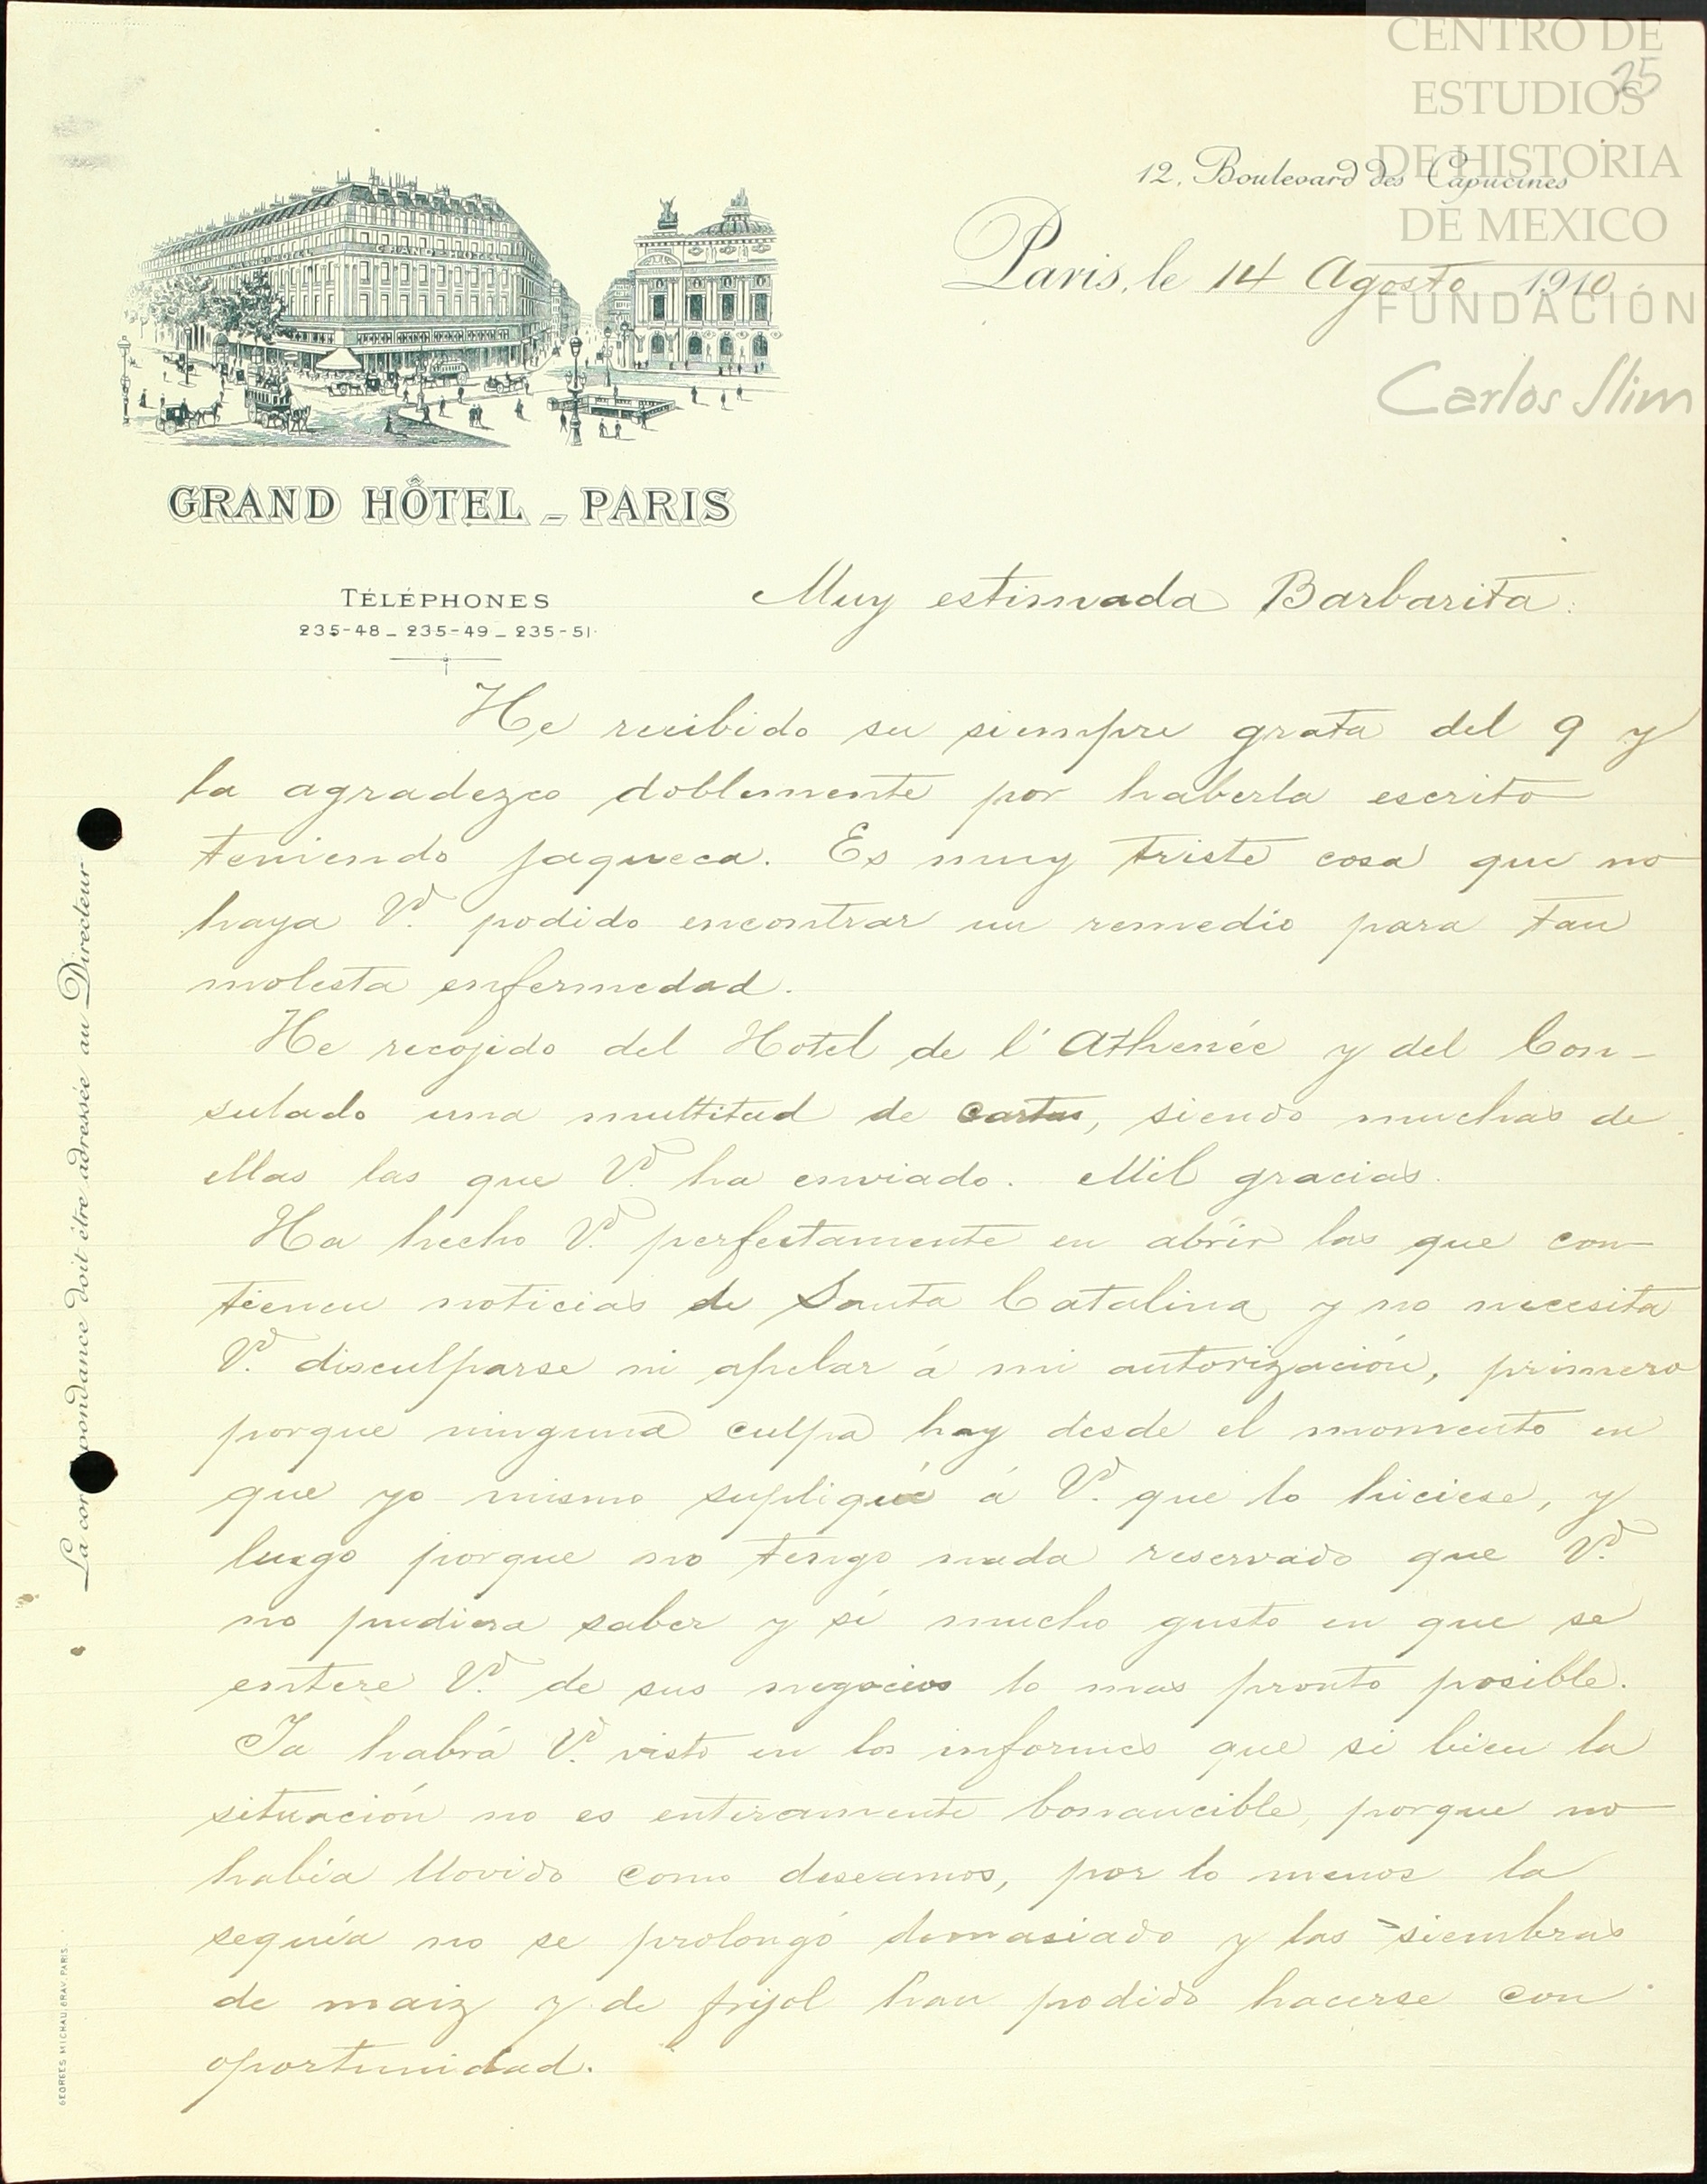 CENTRO DE
ESTUDIOS
DE HISTORIA
DE MEXICO
FUNDACIÓN
Carlos Slim
25
12, Boulevard des Capucines
Paris, le 14 Agosto 1910
GRAND HOTEL
GRAND HÔTEL _ PARIS
TÉLÉPHONES
235-48 _ 235-49 _ 235-51
Muy estimada Barbarita:
He recibido su siempre grata del 9 y
la agradezco doblemente por haberla escrito
teniendo jaqueca. Es muy triste cosa que no
haya Vd. podido encontrar un remedio para tan
molesta enfermedad.
He recojido del Hotel de l'Athenée y del Con-
sulado una multitud de cartas, siendo muchas de
ellas las que Vd. ha enviado. Mil gracias.
Ha hecho Vd. perfectamente en abrir las que con-
tienen noticias de Santa Catalina y no necesita
Vd. disculparse ni apelar á mi autorización, primero
porque ninguna culpa hay desde el momento en
que yo mismo supliqué á Vd. que lo hiciese, y
luego porque no tengo nada reservado que Vd.
no pudiera saber y sí mucho gusto en que se
entere Vd. de sus negocios lo mas pronto posible.
Ya habrá Vd. visto en los informes que si bien la
situación no es enteramente bonancible, porque no
había llovido como deseamos, por lo menos la
sequía no se prolongó demasiado y las siembras
de maiz y de frijol han podido hacerse con
oportunidad.
La correspondance doit être adressée au Directeur
GEORGES MICHAU, GRAV. PARIS.